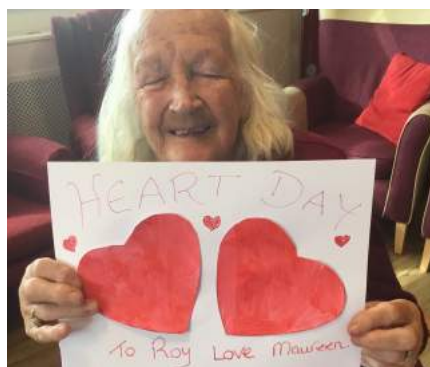 HEART DAY
To Roy Love Maureen